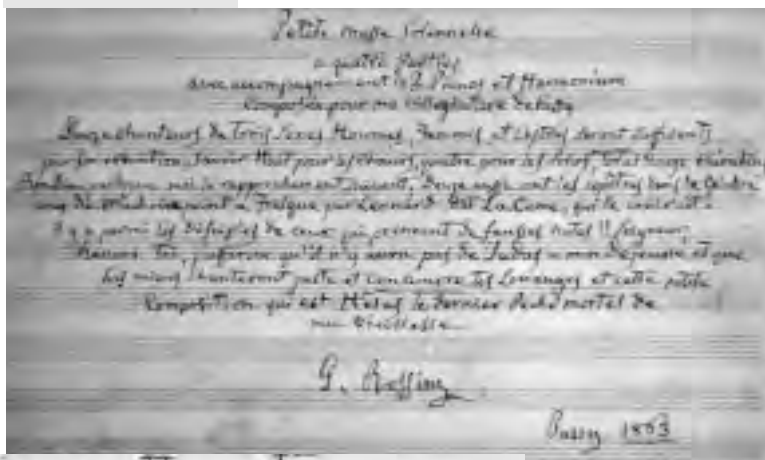 Petite messe solennelle
a quatre Parties
avec accompagnement de 2 Pianos et Harmonium
Composée pour ma villégiature de Passy
Douze chanteurs de trois Sexes Hommes, Femmes et Castrés seront suffisants
pour son exécution, savoir Huit pour les chœurs, quatre pour les solos, total Douze chérubins
pardonne moi le rapprochement suivant, Douze aussi sont les apôtres dans le célèbre
coup de mâchoire peint a Fresque par Léonard dit La Cène, qui le croirait
il y a parmi tes disciples de ceux qui prennent de fausses notes!! Seigneur,
Rassure Toi, j'affirme qu'il n'y aura pas de Judas a mon Déjeuné et que
les miens chanteront juste et con amore tes Louanges et cette petite
Composition qui est Hélas le dernier Péché mortel de
ma Vieillesse
G. Rossini
Passy 1863